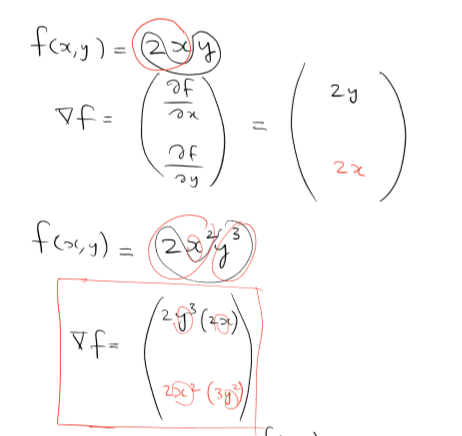 f(x,y) = 2xy
∇f = (∂f/∂x ∂f/∂y) = (2y 2x)
f(x,y) = 2x²y³
∇f = (2y³(2x) 2x²(3y²))